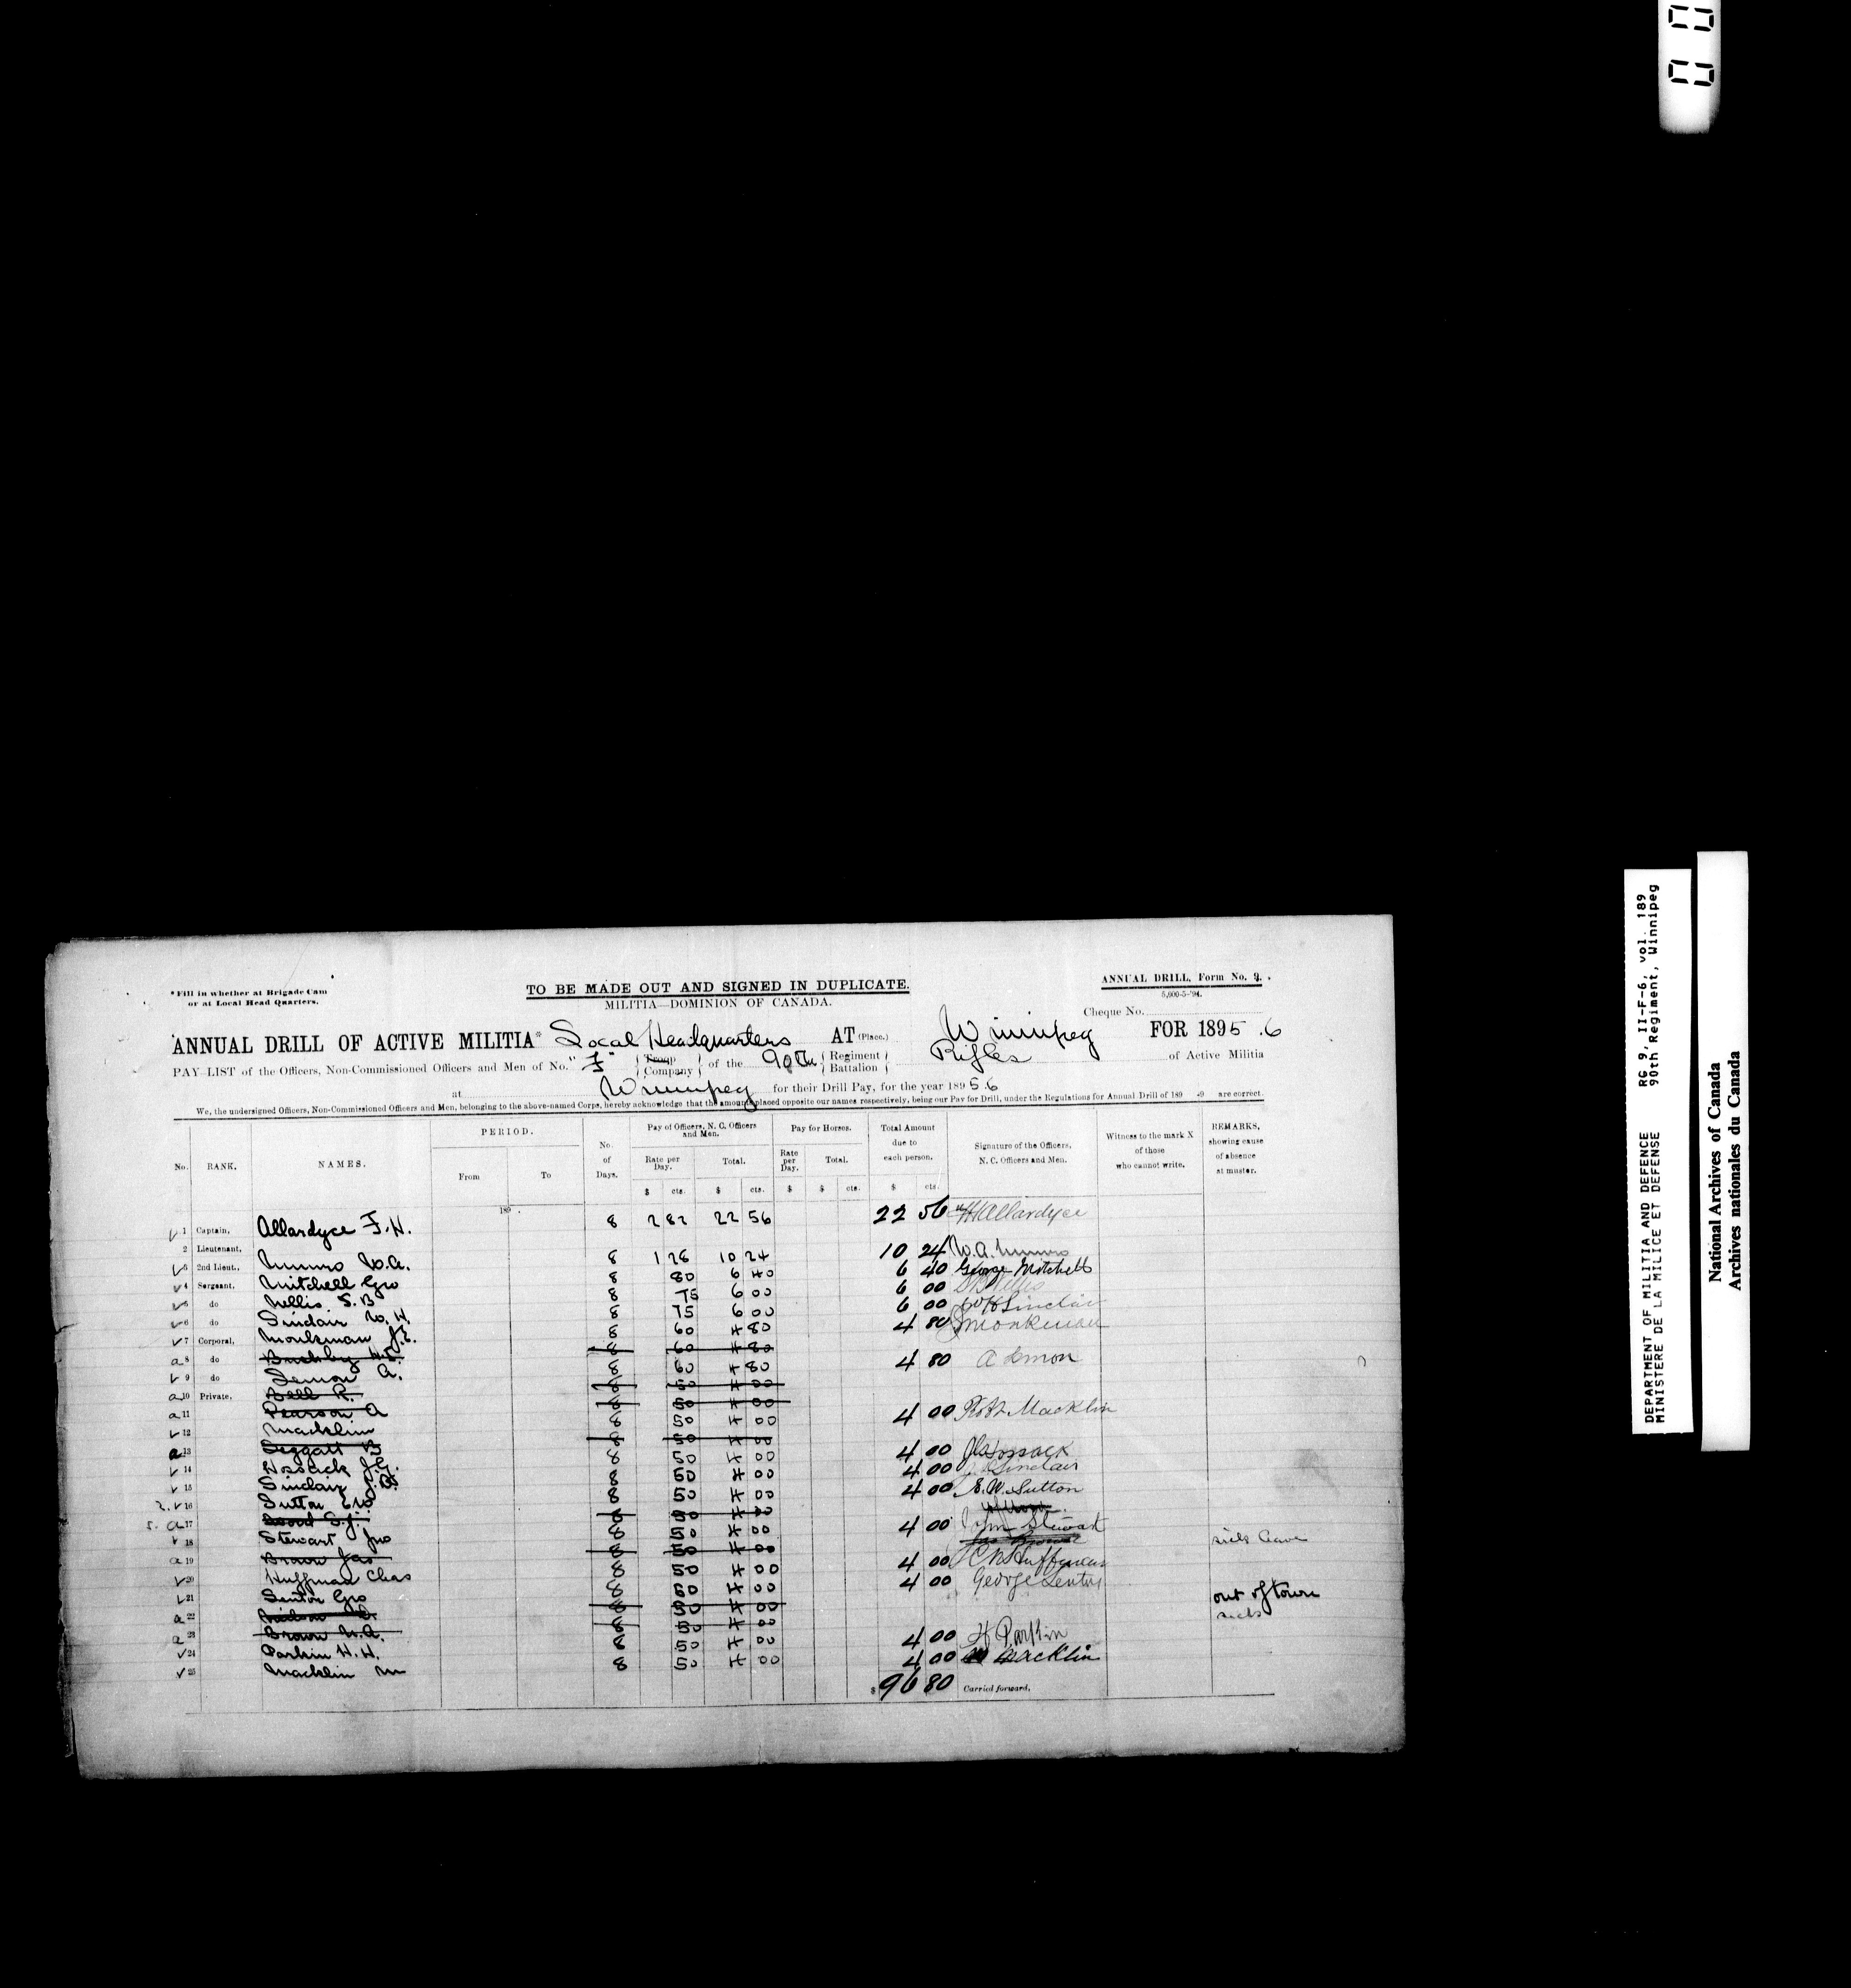 *Fill in whether at Brigade Cam
or at Local Head Quarters.
TO BE MADE OUT AND SIGNED IN DUPLICATE.
MILITIA—DOMINION OF CANADA.
ANNUAL DRILL, Form No. 9.
5,000-5-'94.
Cheque No.
ANNUAL DRILL OF ACTIVE MILITIA* Local Headquarters AT (Place.) Winnipeg FOR 1895.6
PAY-LIST of the Officers, Non-Commissioned Officers and Men of No. "F" Troop Company of the 90th Regiment Battalion Rifles of Active Militia
at Winnipeg for their Drill Pay, for the year 1895.6
We, the undersigned Officers, Non-Commissioned Officers and Men, belonging to the above-named Corps, hereby acknowledge that the amounts placed opposite our names respectively, being our Pay for Drill, under the Regulations for Annual Drill of 189 -9 are correct.
No. RANK. NAMES. PERIOD. From To No. of Days. Pay of Officers, N. C. Officers and Men. Rate per Day. Total. Pay for Horses. Rate per Day. Total. Total Amount due to each person. Signature of the Officers, N. C. Officers and Men. Witness to the mark X of those who cannot write. REMARKS, showing cause of absence at muster.
$ cts. $ cts. $ $ cts. $ cts.
189 .
1 Captain, Allardyce F. H. 8 2 82 22 56 22 56 Allardyce
2 Lieutenant,
3 2nd Lieut., Munro W.A. 8 1 28 10 24 10 24 W.A. Munro
4 Sergeant, Mitchell Geo 8 80 6 40 6 40 George Mitchell
5 do Nellis S. B 8 75 6 00 6 00
6 do Sinclair W. H. 8 75 6 00 6 00 W H Sinclair
7 Corporal, Monkman J. 8 60 4 80 4 80 Monkman
a 8 do 8 60 4 80
9 do Lemon A. 8 60 4 80 4 80 A Lemon
a 10 Private, Bell R. 8 50 4 00
a 11 Pearson A 8 50 4 00
12 Macklin 8 50 4 00 4 00 Robt Macklin
a 13 8 50 4 00
14 Hossack J.G. 8 50 4 00 4 00 Hossack
15 Sinclair 8 50 4 00 4 00 Sinclair
16 Sutton E.W. 8 50 4 00 4 00 E.W. Sutton
a 17 Wood S.J. 8 50 4 00
18 Stewart Jno 8 50 4 00 4 00 Stewart sick leave
a 19 Brown Jas 8 50 4 00
20 Huffman Chas 8 50 4 00 4 00 Huffman
21 Sentor Geo 8 50 4 00 4 00 George
out of town
a 22 8 50 4 00 sick
a 23 Brown W.A. 8 50 4 00
24 Parkin H. H. 8 50 4 00 4 00 H Parkin
25 Macklin M 8 50 4 00 4 00 Macklin
$ 96 80 Carried forward.
DEPARTMENT OF MILITIA AND DEFENCE RG 9, II-F-6, vol. 189
MINISTERE DE LA MILICE ET DEFENSE 90th Regiment, Winnipeg
National Archives of Canada
Archives nationales du Canada